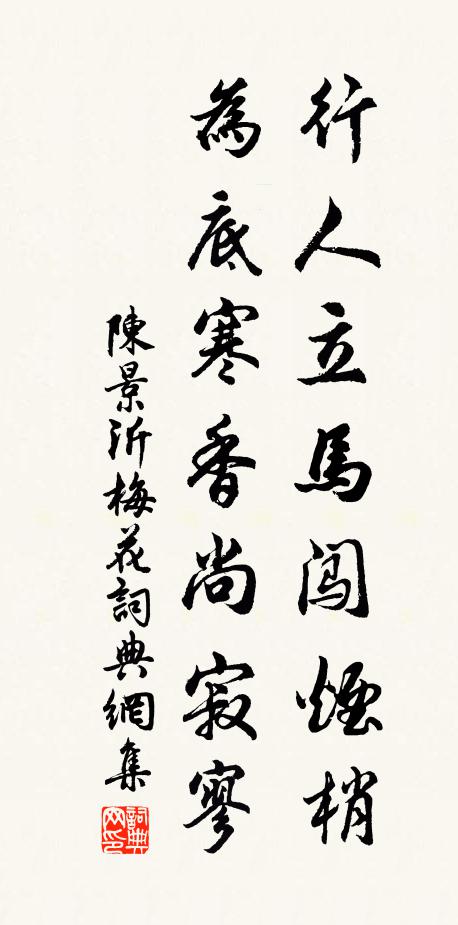 行人立馬闖煙梢
為底寒香尚寂寥
陳景沂梅花詞典網集
詞典網印